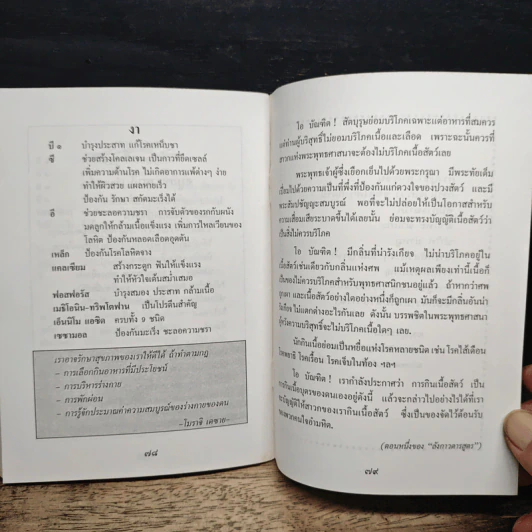 งา
บี ๑ บำรุงประสาท แก้โรคเหน็บชา
ซี ช่วยสร้างโคลเลเจน เป็นการที่ยึดเซลล์
เพิ่มความต้านโรค ไม่เกิดอาการแพ้ต่างๆ ง่าย
ทำให้ผิวสวย แผลหายเร็ว
ป้องกัน รักษา สกัดมะเร็งได้
อี ช่วยชะลอความชรา การจับตัวของรกกับผนัง
มดลูกให้กล้ามเนื้อแข็งแรง เพิ่มการไหลเวียนของ
โลหิต ป้องกันหลอดเลือดอุดตัน
เหล็ก ป้องกันโรคโลหิตจาง
แคลเซียม สร้างกระดูก ฟันให้แข็งแรง
ทำให้หัวใจเต้นสม่ำเสมอ
ฟอสฟอรัส บำรุงสมอง ประสาท กล้ามเนื้อ
เมธิโอนิน-ทริพโตฟาน เป็นโปรตีนสำคัญ
เอ็นนิโม แอซิด ครบทั้ง ๙ ชนิด
เซซามอล ป้องกันมะเร็ง ชะลอความชรา
เราอาจรักษาสุขภาพของเราให้ดีได้ ถ้าทำตามกฎ
- การเลือกกินอาหารที่มีประโยชน์
- การบริหารร่างกาย
- การพักผ่อน
- การรู้จักประมาณค่าความสมบูรณ์ของร่างกายของตน
-โมราธิ เดซาย-
๗๘
โอ บัณฑิต! สัตบุรุษย่อมบริโภคเฉพาะแต่อาหารที่สมควร
แต่ท่านผู้บริสุทธิ์ไม่ยอมบริโภคเนื้อและเลือด เพราะฉะนั้นควรที่
สาวกแห่งพระพุทธศาสนาจะต้องไม่บริโภคเนื้อสัตว์เลย
พระพุทธเจ้าผู้ซึ่งเยือกเย็นไปด้วยพระกรุณา มีพระทัยเต็ม
เปี่ยมไปด้วยความเป็นที่พึ่งที่ป้องกันแก่ดวงใจของปวงสัตว์ และมี
พระสัมปชัญญะสมบูรณ์ พอที่จะไม่ปล่อยให้เป็นโอกาสสำหรับ
ความเสื่อมเสียระบาดขึ้นได้เลยนั้น ย่อมจะทรงบัญญัติเนื้อสัตว์ว่า
เป็นสิ่งไม่ควรบริโภค
โอ บัณฑิต! มีกลิ่นที่น่ารังเกียจ ไม่น่าบริโภคอยู่ใน
เนื้อสัตว์เช่นเดียวกับกลิ่นแห่งศพ แม้เหตุผลเพียงเท่านี้เนื้อก็
เป็นของไม่ควรบริโภคสำหรับพุทธศาสนิกชนอยู่แล้ว ถ้าหากว่าศพ
ถูกเผา และเนื้อสัตว์อย่างใดอย่างหนึ่งก็ถูกเผา มันก็จะมีกลิ่นอันน่า
รังเกียจไม่แตกต่างอะไรกันเลย ดังนั้น บรรพชิตในพระพุทธศาสนา
ผู้หวังความบริสุทธิ์จะไม่บริโภคเนื้อใดๆ เลย.
นักกินเนื้อย่อมเป็นเหยื่อแห่งโรคหลายชนิด เช่น โรคไส้เดือน
โรคพยาธิ โรคเรื้อน โรคเจ็บในท้อง ฯลฯ
โอ บัณฑิต! เรากำลังประกาศว่า การกินเนื้อสัตว์ เป็น
การกินเนื้อบุตรของตนเองอยู่ดังนี้ แล้วจะกล่าวไปอย่างไรได้ที่เรา
จะบัญญัติให้สาวกของเรากินเนื้อสัตว์ ซึ่งเป็นของจัดไว้ต้อนรับ
ของพวกคนใจอำมหิต.
(ตอนหนึ่งของ "ลังกาวตารสูตร")
๗๙